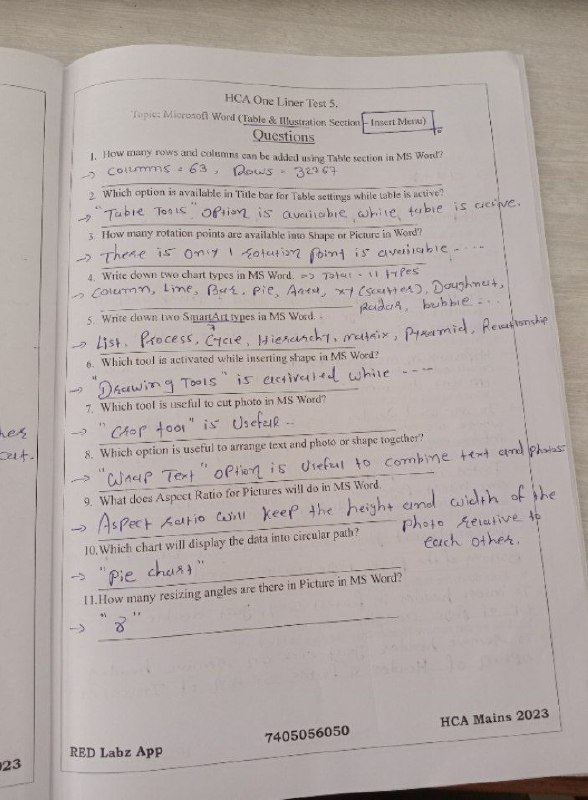 HCA One Liner Test 5.
Topic: Microsoft Word (Table & Illustration Section - Insert Menu)
Questions
1. How many rows and columns can be added using Table section in MS Word?
→ Columns = 63, Rows = 32767
2. Which option is available in Title bar for Table settings while table is active?
→ "Table Tools" option is available while table is active.
3. How many rotation points are available into Shape or Picture in Word?
→ There is only 1 rotation point is available ....
4. Write down two chart types in MS Word. => Total = 11 types
→ Column, Line, Bar, Pie, Area, xy (scatter), Doughnut,
Radar, bubble ...
5. Write down two SmartArt types in MS Word.
→ List, Process, Cycle, Hierarchy, matrix, Pyramid, Relationship
6. Which tool is activated while inserting shape in MS Word?
→ "Drawing Tools" is activated while ----
7. Which tool is useful to cut photo in MS Word?
→ "Crop tool" is useful --
8. Which option is useful to arrange text and photo or shape together?
→ "Wrap Text" option is useful to combine text and photos
9. What does Aspect Ratio for Pictures will do in MS Word.
→ Aspect ratio will keep the height and width of the
photo relative to
each other.
10. Which chart will display the data into circular path?
→ "Pie chart"
11. How many resizing angles are there in Picture in MS Word?
→ "8"
RED Labz App
7405056050
HCA Mains 2023